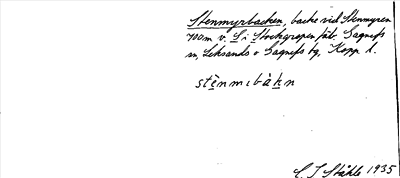 Stenmyrbacken, backe vid Stenmyren
700m v. S i Stockgropen fäb. Gagnefs
sn, Leksands o Gagnefs tg, Kopp. l.
stènmιbàkn
C. I. Ståhle 1935